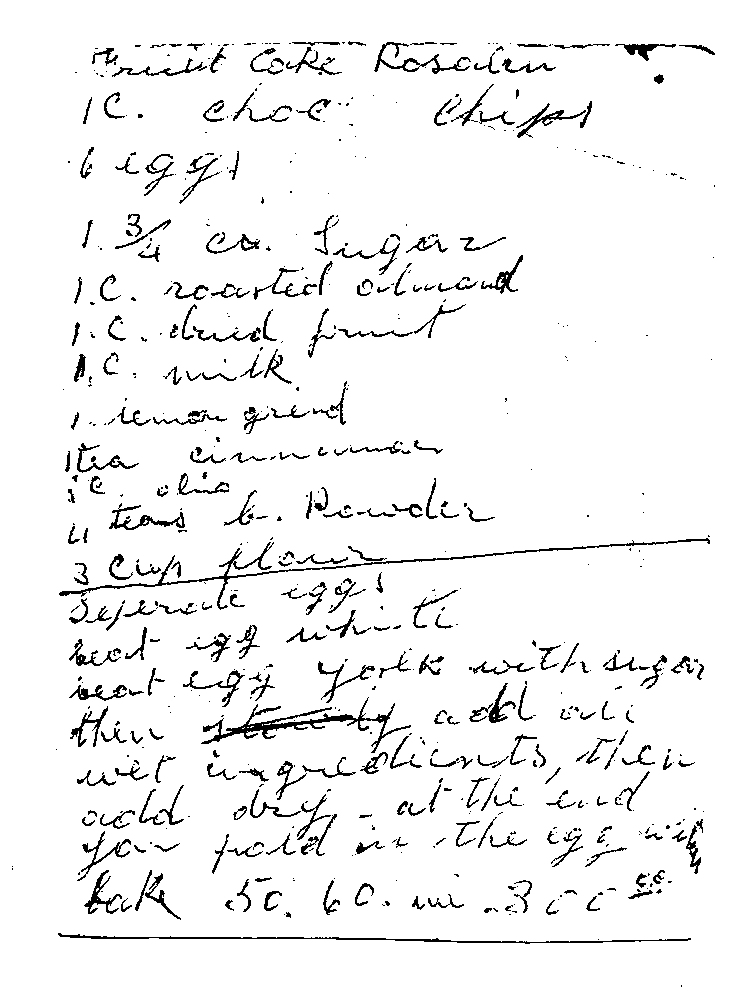 Fruit Cake Rosalin
1C. choc chips
6 eggs
1. 3/4 cu. Sugar
1.C. roasted almand
1.C. dried fruit
1.C. milk
1. lemon grind
1 tea cinnumar
1c. olio
4 teans b. Powder
3 cup flour
Seperate eggs
beat egg white
beat egg yorlk with sugar
then add all
wet ingredients, then
add dry - at the end
you fold in the egg
bake 50. 60. mi. 300